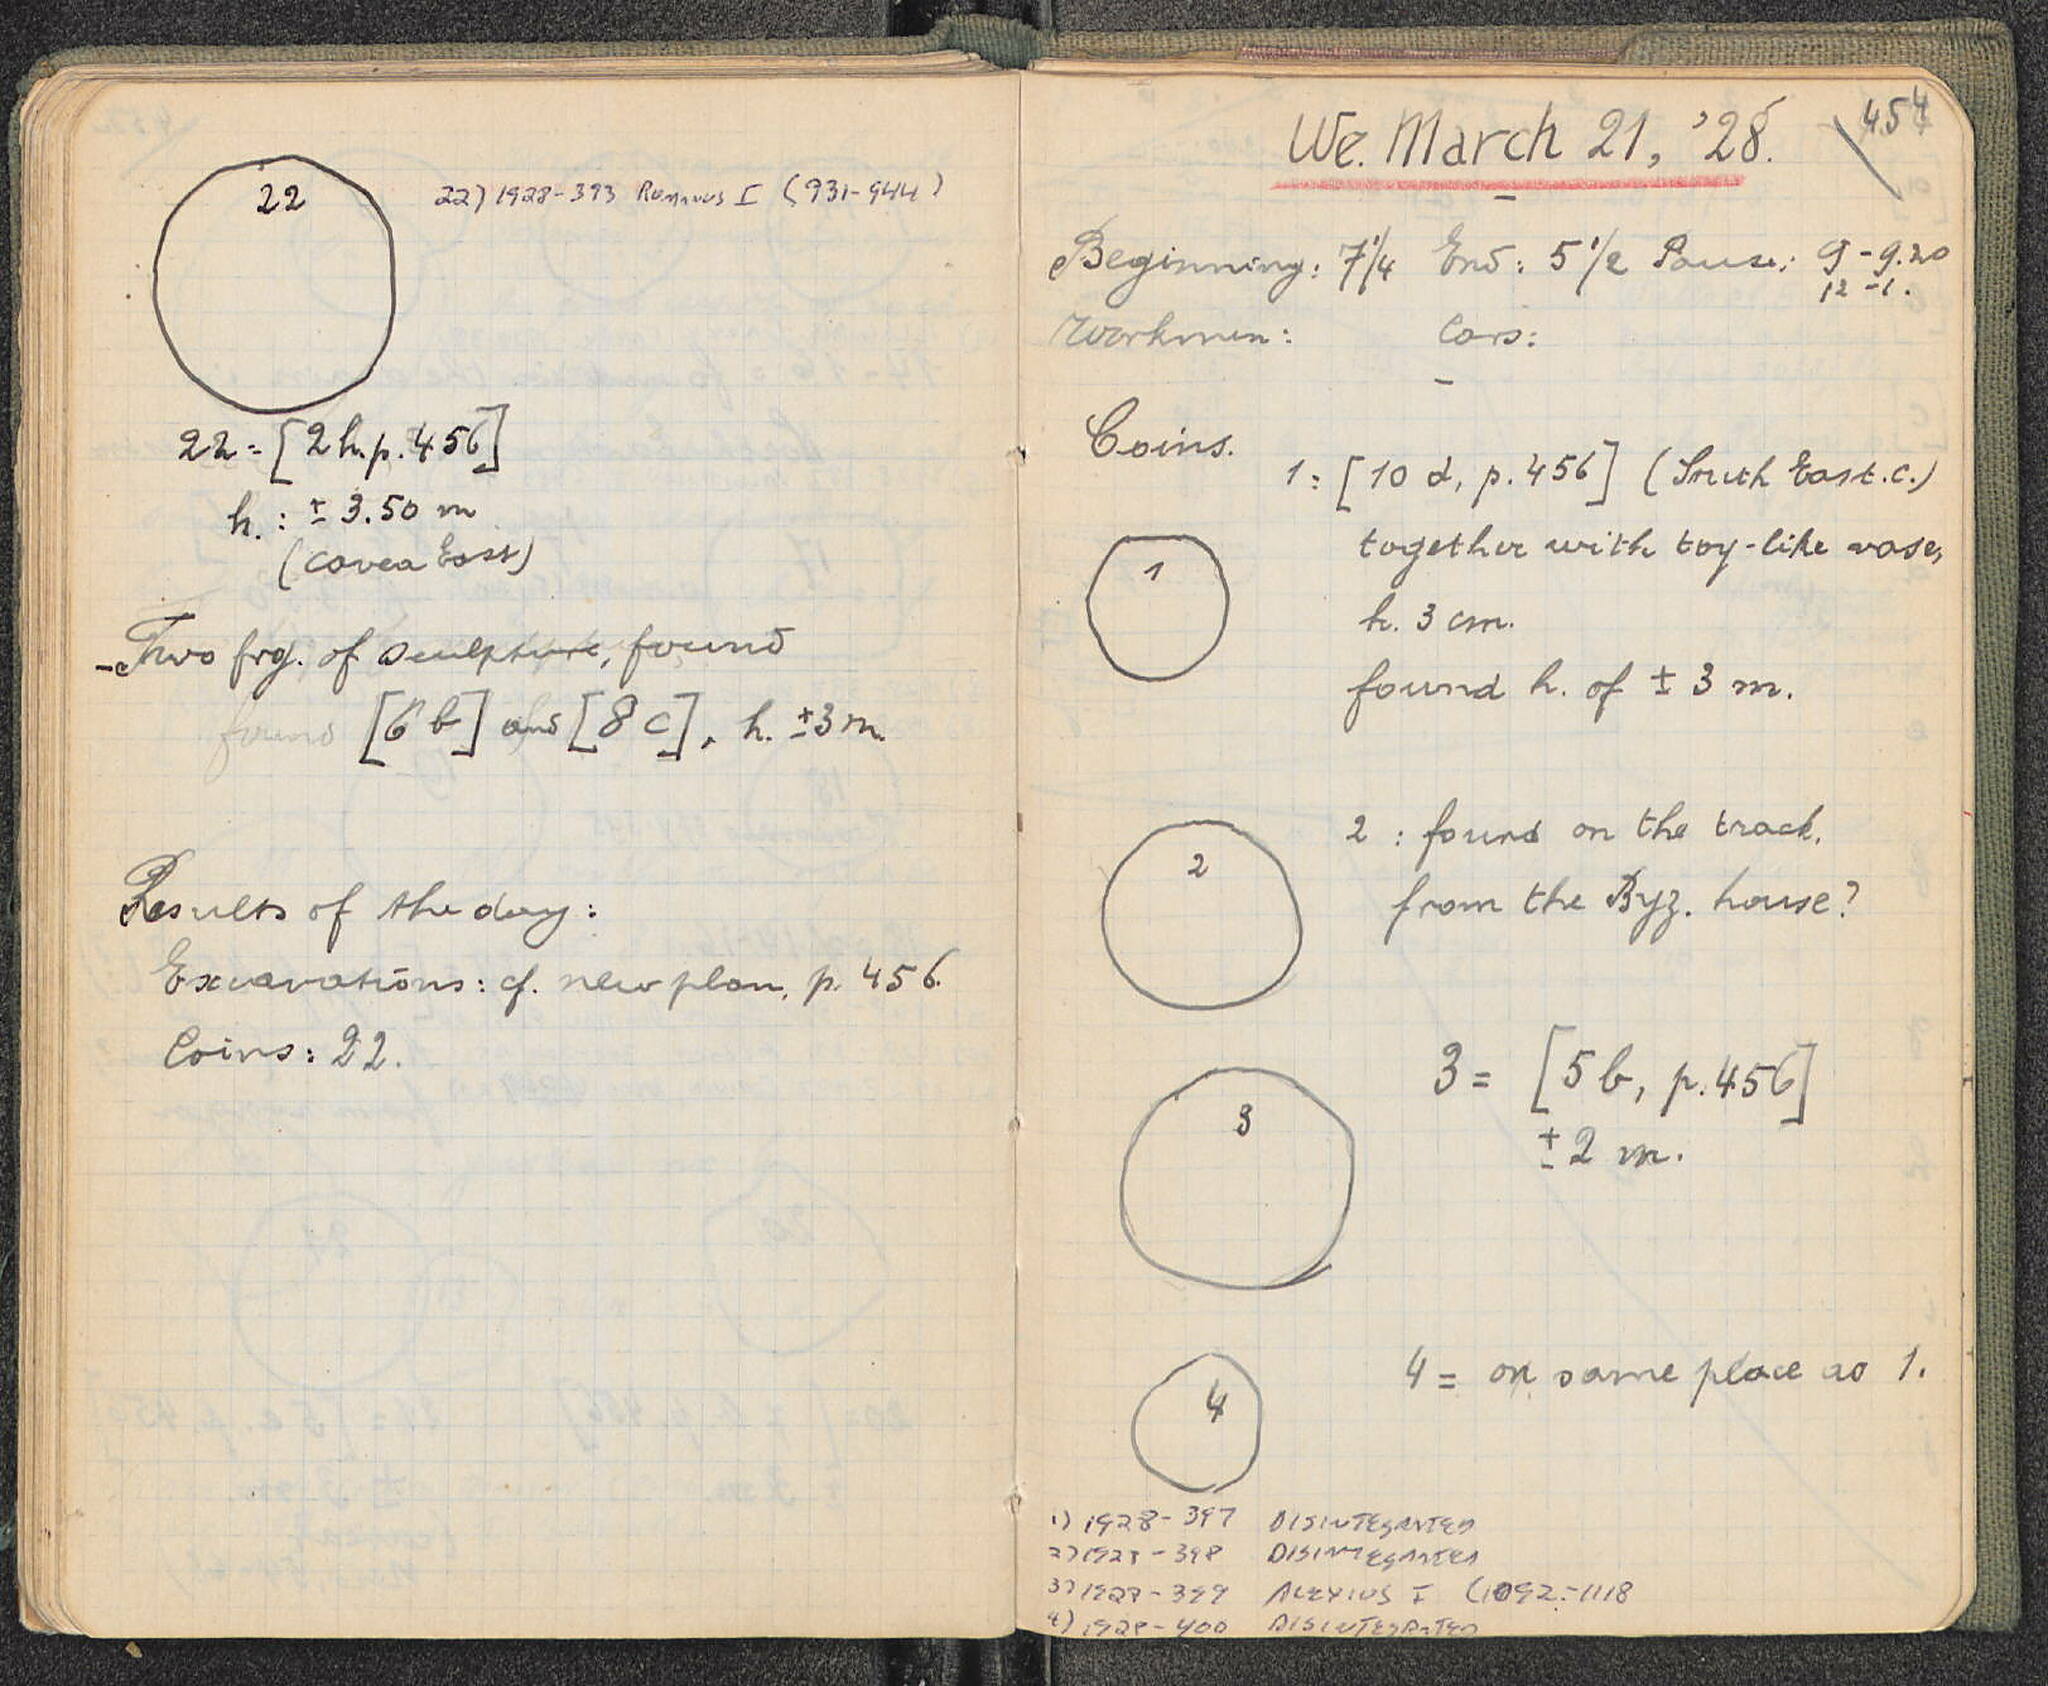 22
22) 1928-393 Romanus I (931-944)
22 = [2 h. p. 456]
h. : ± 3.50 m
(cavea East)
- Two frg. of sculpture, found
found [6 b] and [8 c], h. ±3 m.
Results of the day:
Excavations: cf. new plan, p. 456.
Coins: 22.
454
We. March 21, '28.
Beginning: 7 1/4 End: 5 1/2 Pause: 9 - 9.20
12 - 1.
Workmen: Cars:
Coins.
1 = [10 d, p. 456] (South East. c.)
together with toy-like vase,
1
h. 3 cm.
found h. of ± 3 m.
2 : found on the track.
2
from the Byz. house?
3 = [5 b, p. 456]
3
± 2 m.
4 = on same place as 1.
4
1) 1928-397 DISINTEGRATED
2) 1928-398 DISINTEGRATED
3) 1928-399 ALEXIUS I (1092-1118
4) 1928-400 DISINTEGRATED